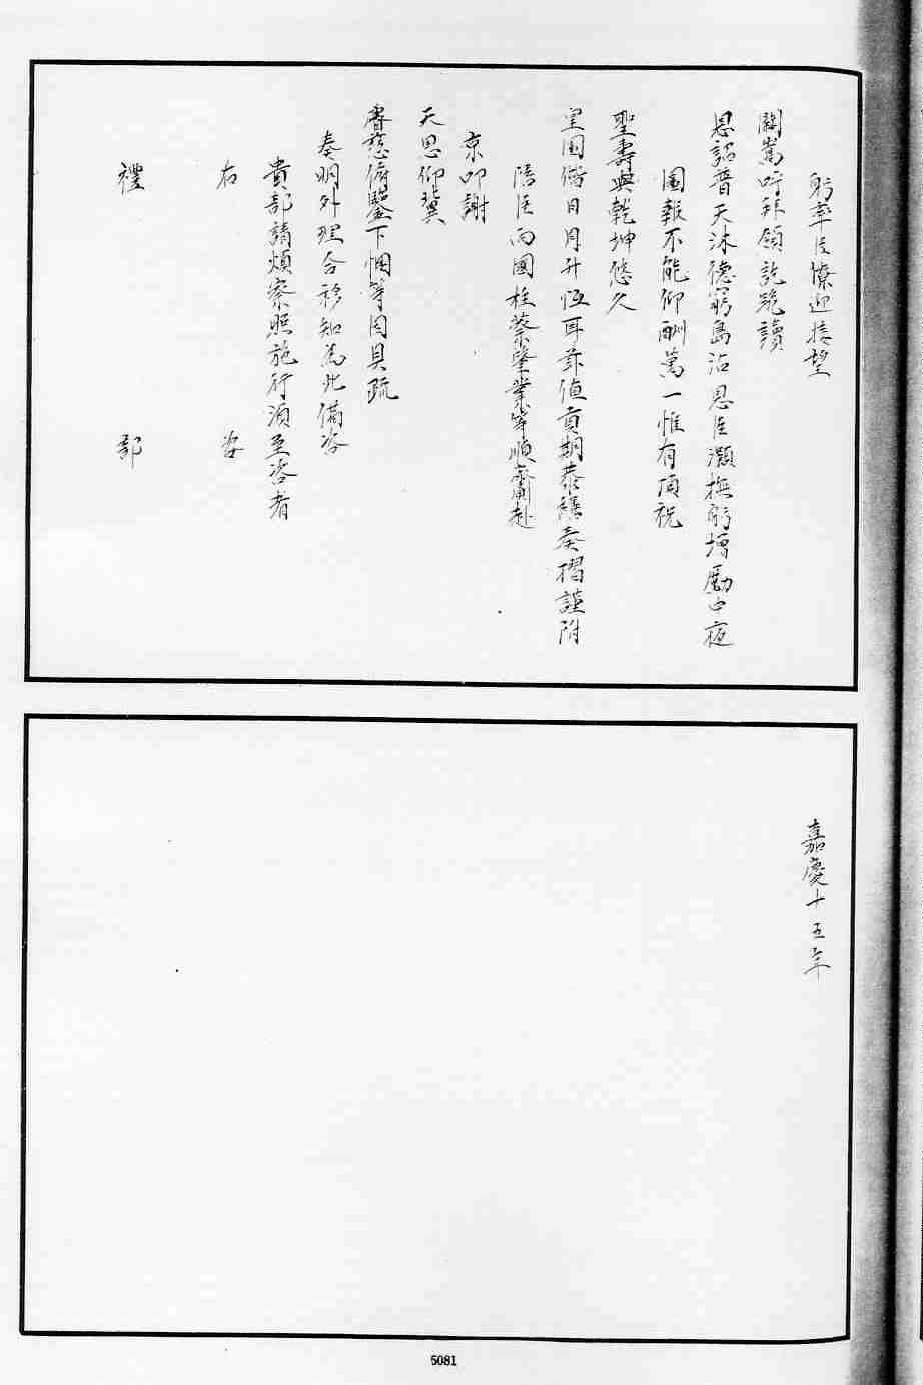 躬率臣僚迎接望
闕嵩呼拜領訖跪讀
恩詔普天沐德窮島沾恩臣灝撫躬增勵中夜
圖報不能仰酬萬一惟有頂祝
聖壽與乾坤悠久
皇圖偕日月升恆耳茲值貢期恭繕奏摺謹附
陪臣向國柱蔡肇業等順齎赴
京叩謝
天恩仰冀
睿慈俯鑒下悃等因具疏
奏明外理合移知為此備咨
貴部請煩察照施行須至咨者
右咨
禮部
嘉慶十五年
5081